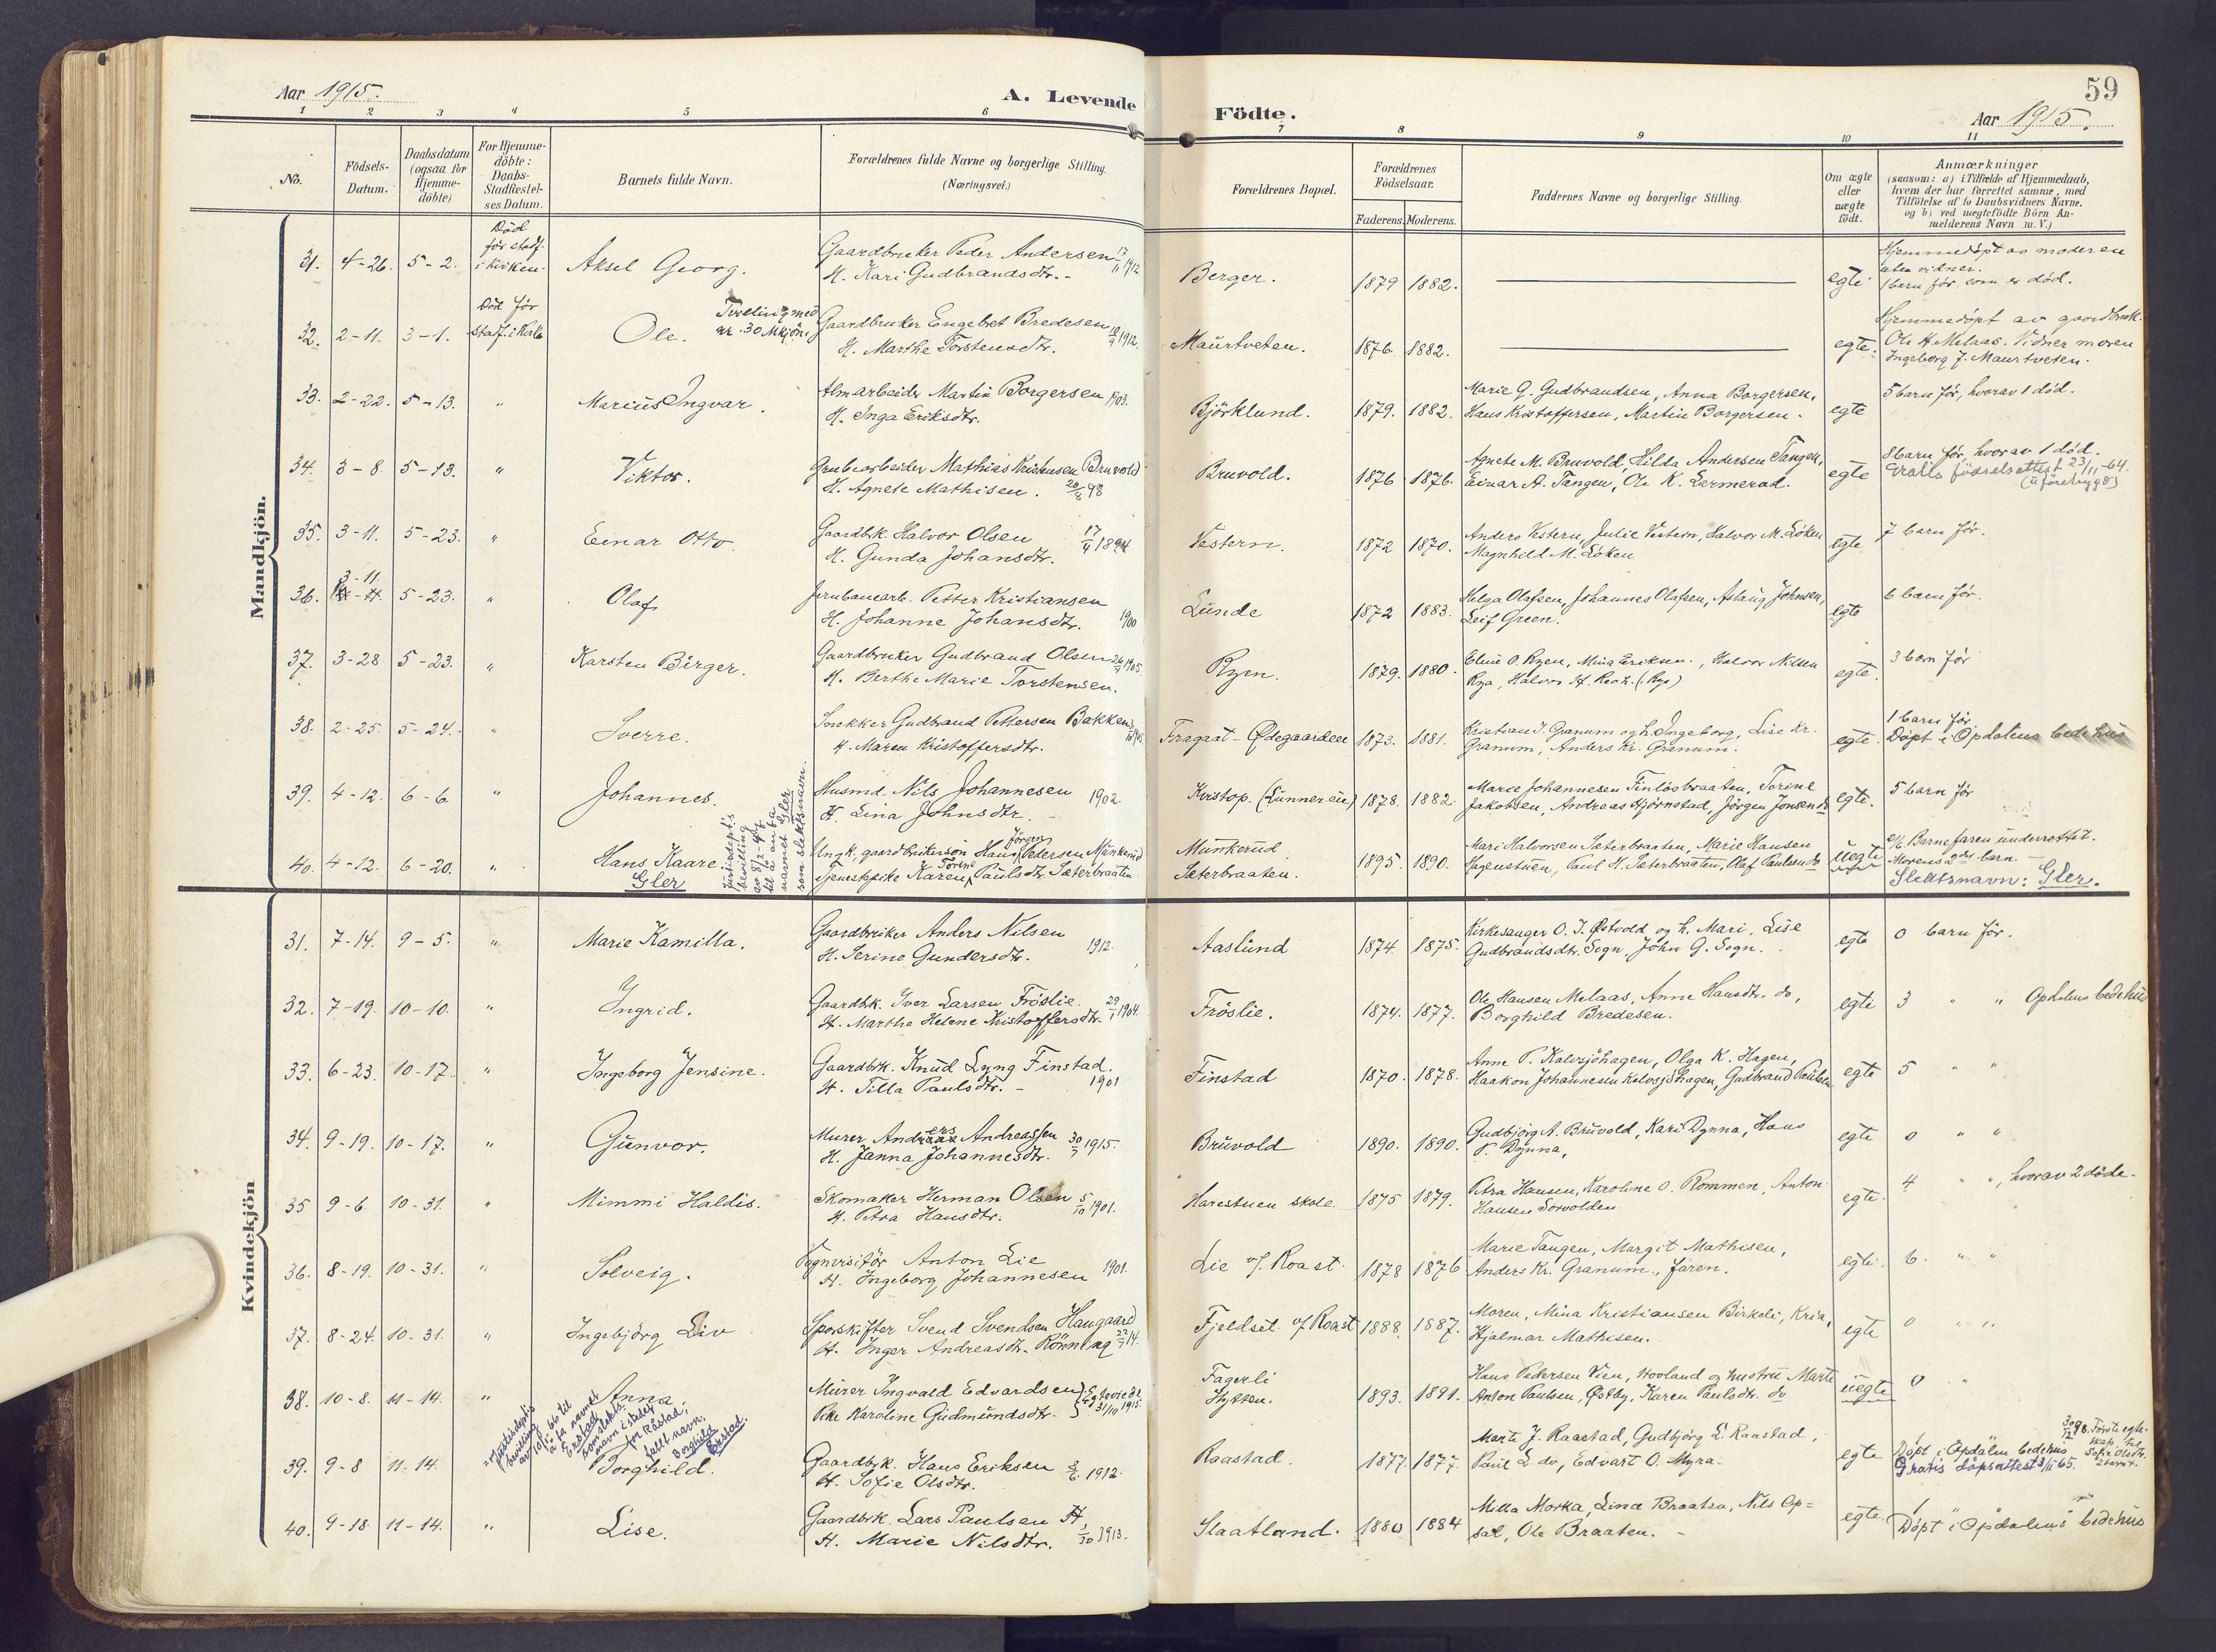 59
Aar 1915.
A. Levende
Födte.
Aar 1915.
1 2 3 4 5 6 7 8 9 10 11
No.
Födsels-
Datum.
Daabsdatum
(ogsaa for
Hjemme-
döbte)
For Hjemme-
döbte:
Daabs-
Stadfæstel-
ses Datum.
Barnets fulde Navn.
Forældrenes fulde Navne og borgerlige Stilling.
(Næringsvei.)
Forældrenes Bopæl.
Forældrenes
Födselsaar.
Faderens. Moderens.
Faddernes Navne og borgerlige Stilling.
Om ægte
eller
uægte
födt.
Anmærkninger
(saasom: a) i Tilfælde af Hjemmedaab,
hvem der har forrettet samme, med
Tilföielse af to Daabsvidners Navne.
og b) ved uegtefödte Börn An-
melderens Navn m. V.)
Mandkjön.
31. 4-26. 5-2. Död
för stadf.
i kirken. Aksel Georg. Gaardbruker Peder Andersen 17/11 1912
H. Kari Gudbrandsdtr. Berger. 1879 1882. egte. Hjemmedöpt av moderen
uten vidner.
1 barn för, som er död.
32. 2-11. 3-1. Död för
stadf. i Kirke Ole. Tvelling med
nr. 30 Mkjön. Gaardbruker Engebret Bredesen 1912.
H. Marthe Torstensdtr. Maurtveten. 1876. 1882. egte. Hjemmedöpt av gaardbruk.
Ole H. Melaas. Vidner moren
Ingeborg J. Maurtveten.
33. 2-22. 5-13. " Marius Ingvar. Alm arbeider Martin Borgersen 1903.
H. Inga Eriksdtr. Björklund. 1879. 1882. Marie G. Gudbrandsen, Anna Borgersen,
Hans Kristoffersen, Martin Borgersen. egte 5 barn för, hvorav 1 död.
34. 3-8. 5-13. " Viktor. Grubearbeider Mathias Kristiansen Bruvold
H. Agnete Mathisen. 20/8 98 Bruvold. 1876 1876. Agnete M. Bruvold, Hilda Andersen Tangen,
Einar A. Tangen, Ole K. Lermerad. egte 8 barn för, hvorav 1 död.
Gratis födselsattest 23/11-64.
35. 3-11. 5-23. " Einar Otto. Gaardbk. Halvor Olsen 17/4 1894
H. Gunda Johansdtr. Vestern. 1872 1870. Anders Vestern, Julie Vestern, Halvor M. Löken
Magnhild M. Löken egte 7 barn för.
36. 3-11. 5-23. " Olaf. Jernbanearb. Petter Kristiansen
H. Johanne Johansdtr. 1900 Lunde 1872 1883. Helga Olafsen, Johannes Olafsen, Aslaug Johnsen,
Leif Green. egte 6 barn för.
37. 3-28 5-23. " Karsten Birger. Gaardbruker Gudbrand Olsen 1905
H. Berthe Marie Torstensen. Ryen. 1879. 1880. Eline O. Ryen, Mina Eriksen., Halvor Nilsen
Rya, Halvor H. (Rya) egte. 3 barn för
38. 2-25. 5-24. " Sverre. Snekker Gudbrand Pettersen Bakken
H. Maren Kristoffersdtr. Fragaat-Ødegaarden 1873. 1881. Kristian J. Granum og h. Ingeborg, Lise Kr.
Granum, Anders Kr. Granum. egte. 1 barn för.
Döpt i Opdalens bedehus
39. 4-12. 6-6 " Johannes. Husmd. Nils Johannesen 1902
H. Lina Johnsdtr. Kvistop. (Lunnereie) 1878. 1882. Marie Johannesen Finlösbraaten, Torine
Jakobsen, Andreas Hjörnstad, Jörgen Jonsen do egte. 5 barn för
40. 4-12. 6-20. " Hans Kaare
Gler Justisdept's
bevilling
av 8/2-47
til å anta
navnet Gler
som slektsnavn. Ungk. gaardbrukersön Hans Jörgen Pedersen Munkerud
Tjenestepike Karen Torine Paulsdtr. Sæterbraaten Munkerud
Sæterbraaten. 1895. 1890. Mari Halvorsen Sæterbraaten, Marie Hansen
Hagenstuen, Paul H. Sæterbraaten, Olaf Paulsen do uegte Barnefaren underrettet.
Morens 2det barn.
Slektsnavn: Gler.
Kvindekjön
31. 7-14. 9-5. " Marie Kamilla. Gaardbruker Anders Nilsen
H. Serine Gundersdtr. 1912 Aaslund 1874. 1875. Kirkesanger O. J. Østvold og h. Mari, Lise
Gudbrandsdtr. Sogn, John G. Sogn. egte 0 barn för.
32. 7-19. 10-10. " Ingrid. Gaardbk. Iver Larsen Fröslie. 29/1 1904
H. Marthe Helene Kristoffersdtr. Fröslie. 1874. 1877. Ole Hansen Melaas, Anne Hansdtr. do,
Borghild Bredesen. egte 3 " " Opdalens bedehus
33. 6-23. 10-17. " Ingeborg Jensine. Gaardbk. Knud Lyng Finstad.
H. Tilla Paulsdtr. 1901 Finstad 1870. 1878. Anne P. Kalvsjöhagen, Olga K. Hagen,
Haakon Johannesen Kalvsjöhagen, Gudbrand Paulsen egte 5 " "
34. 9-19. 10-17. " Gunvor. Murer Anders Andreassen 30/7 1915.
H. Janna Johannesdtr. Bruvold 1890. 1890. Gudbjörg A. Bruvold, Kari Dynna, Hans
P. Dynna, egte 0 " "
35 9-6. 10-31. " Mimmi Haldis. Skomaker Herman Olsen 5/10 1901.
H. Petra Hansdtr. Harestuen skole. 1875 1879. Petra Hansen, Karoline O. Rommen, Anton
Hansen Sorvolden egte. 4 " ", hvorav 2 döde.
36. 8-19. 10-31. " Solveig. Vognvisitör Anton Lie
H. Ingeborg Johannesen 1901. Lie v/ Roa st. 1878 1876 Marie Tangen, Margit Mathisen,
Anders Kr. Granum, faren. egte. 6. " "
37. 8-24. 10-31. " Ingebjörg Liv Sporskifter Svend Svendsen Haugaard
H. Inger Andreasdtr. Rönning 14. Fjeldset v/ Roa st 1888. 1887. Moren, Mina Kristiansen Birkeli, Kria,
Hjalmar Mathisen. egte 0 " "
38. 10-8. 11-14. " Anna Murer Ingvald Edvardsen
Pike Karoline Gudmundsdtr. Egteviede
31/10 1915. Fagerli
Hytten. 1893. 1891. Hans Pedersen Vien, Hovland og hustru Marte
Anton Paulsen, Østby, Karen Paulsdtr. do uegte 0 "
Justisdeptis
bevilling
av 10/5-66 til
å ta navnet
Erstad
som slekts-
navn i stedet
for Råstad,
fullt navn:
Borghild
Erstad.
39. 9-8 11-14. Borghild. Gaardbk. Hans Eriksen 1912.
H. Sofie Olsdtr. Raastad. 1877. 1877. Marte J. Raastad, Gudbjörg L. Raastad,
Paul L. do, Edvart O. Myra. egte 1
Döpt i Opdalen bedehus
Gratis dåpsattest 3/11 65.
40. 9-18. 11-14. " Lise. Gaardbk. Lars Paulsen
H. Marie Nilsdtr. 1/10 1913. Slaatland. 1880 1884 Milla Morka, Lina Braaten, Nils Op=
sal, Ole Braaten. egte. 1
Döpt i Opdalens bedehus